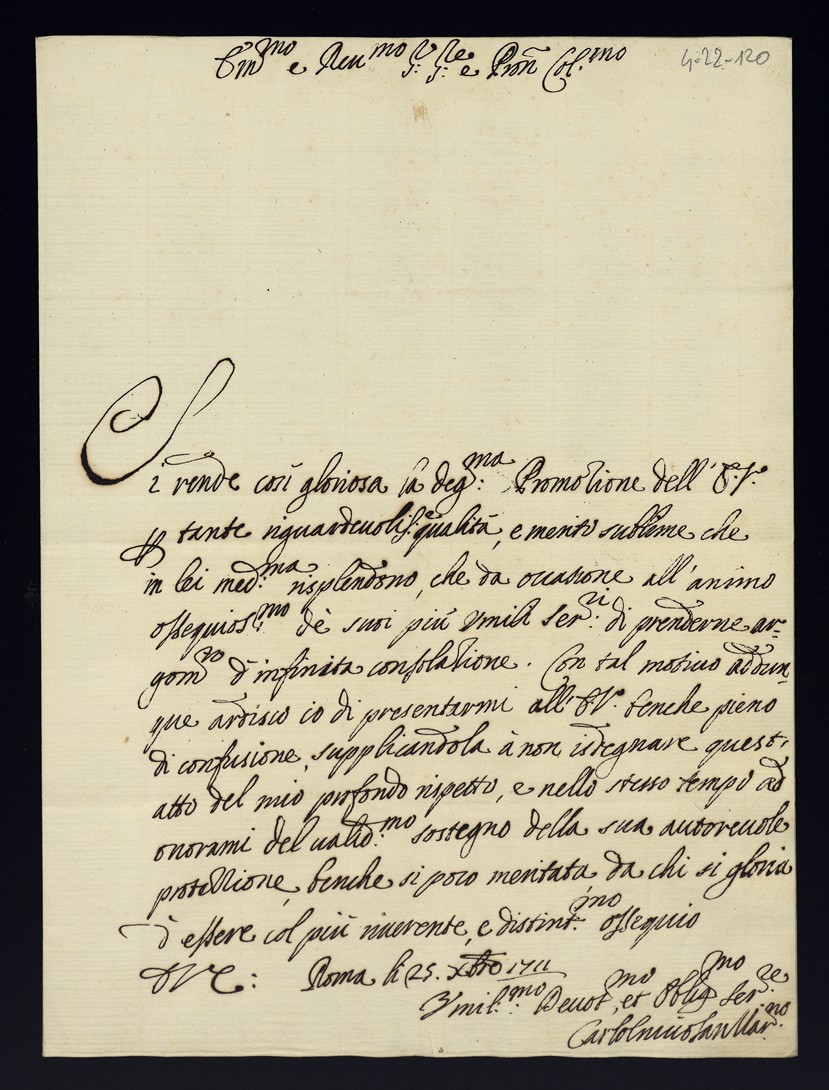 Em.mo e Reu.mo S.r S.re e Pron Col.mo
4-22-120
Si rende così gloriosa la deg.ma Promozione dell' E.V.
tante riguardeuoliss.e qualità, e merito sublime che
in lei med.ma risplendono, che da occasione all'animo
ossequios.mo dè suoi più Vmili Ser.ri di prenderne ar=
gom.to d'infinita consolazione. Con tal motiuo addun
que ardisco io di presentarmi all' E.V. benche pieno
di confusione, supplicandola à non isdegnare quest'
atto del mio profondo rispetto, e nello stesso tempo ad
onorarmi del ualid.mo sostegno della sua autoreuole
protezzione, benche si poco meritata da chi si gloria
d'essere col più riuerente, e distint.mo ossequio
D V E: Roma li 25. Xbro 1711
Vmil.mo Deuot.mo et Oblig.mo Ser.re